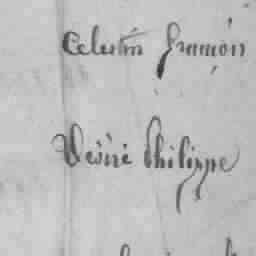 Celestin françois
Désiré Philippe